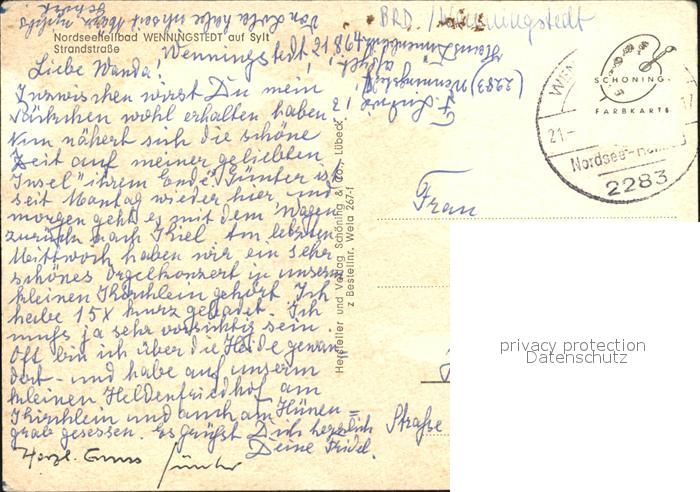 Von Lola habe ich seit
gehört
BRD. / Wenningstedt
Nordseeheilbad WENNINGSTEDT auf Sylt
Strandstraße
Wenningstedt, 21.8.64
Liebe Wanda!
Inzwischen wirst Du mein
wohl erhalten haben.
Nun nähert sich die schöne
Zeit auf meiner geliebten
Insel" ihrem Ende. Günter ist
seit Montag wieder hier und
morgen geht es mit dem Wagen
zurück nach Kiel. Am letzten
Mittwoch haben wir ein sehr
schönes Orgelkonzert in unserm
kleinen Kirchlein gehört. Ich
habe 15 x kurz gebadet. Ich
muß ja sehr vorsichtig sein.
Oft bin ich über die Heide gewan-
dert - und habe auf unserm
kleinen Heldenfriedhof am
Kirchlein und auch am Hünen=
grab gesessen. Es grüßt Dich herzlich
Deine Fridel.
Herzl. Gruss Günter
Hersteller und Verlag Schöning & Co., Lübeck
z Bestellnr. Wela 267-1
(2283) Wenningstedt
a/Sylt
SCHÖNING
FARBKARTE
WENN
21.-
Nordsee-heilbad
2283
Frau
Straße
privacy protection
Datenschutz